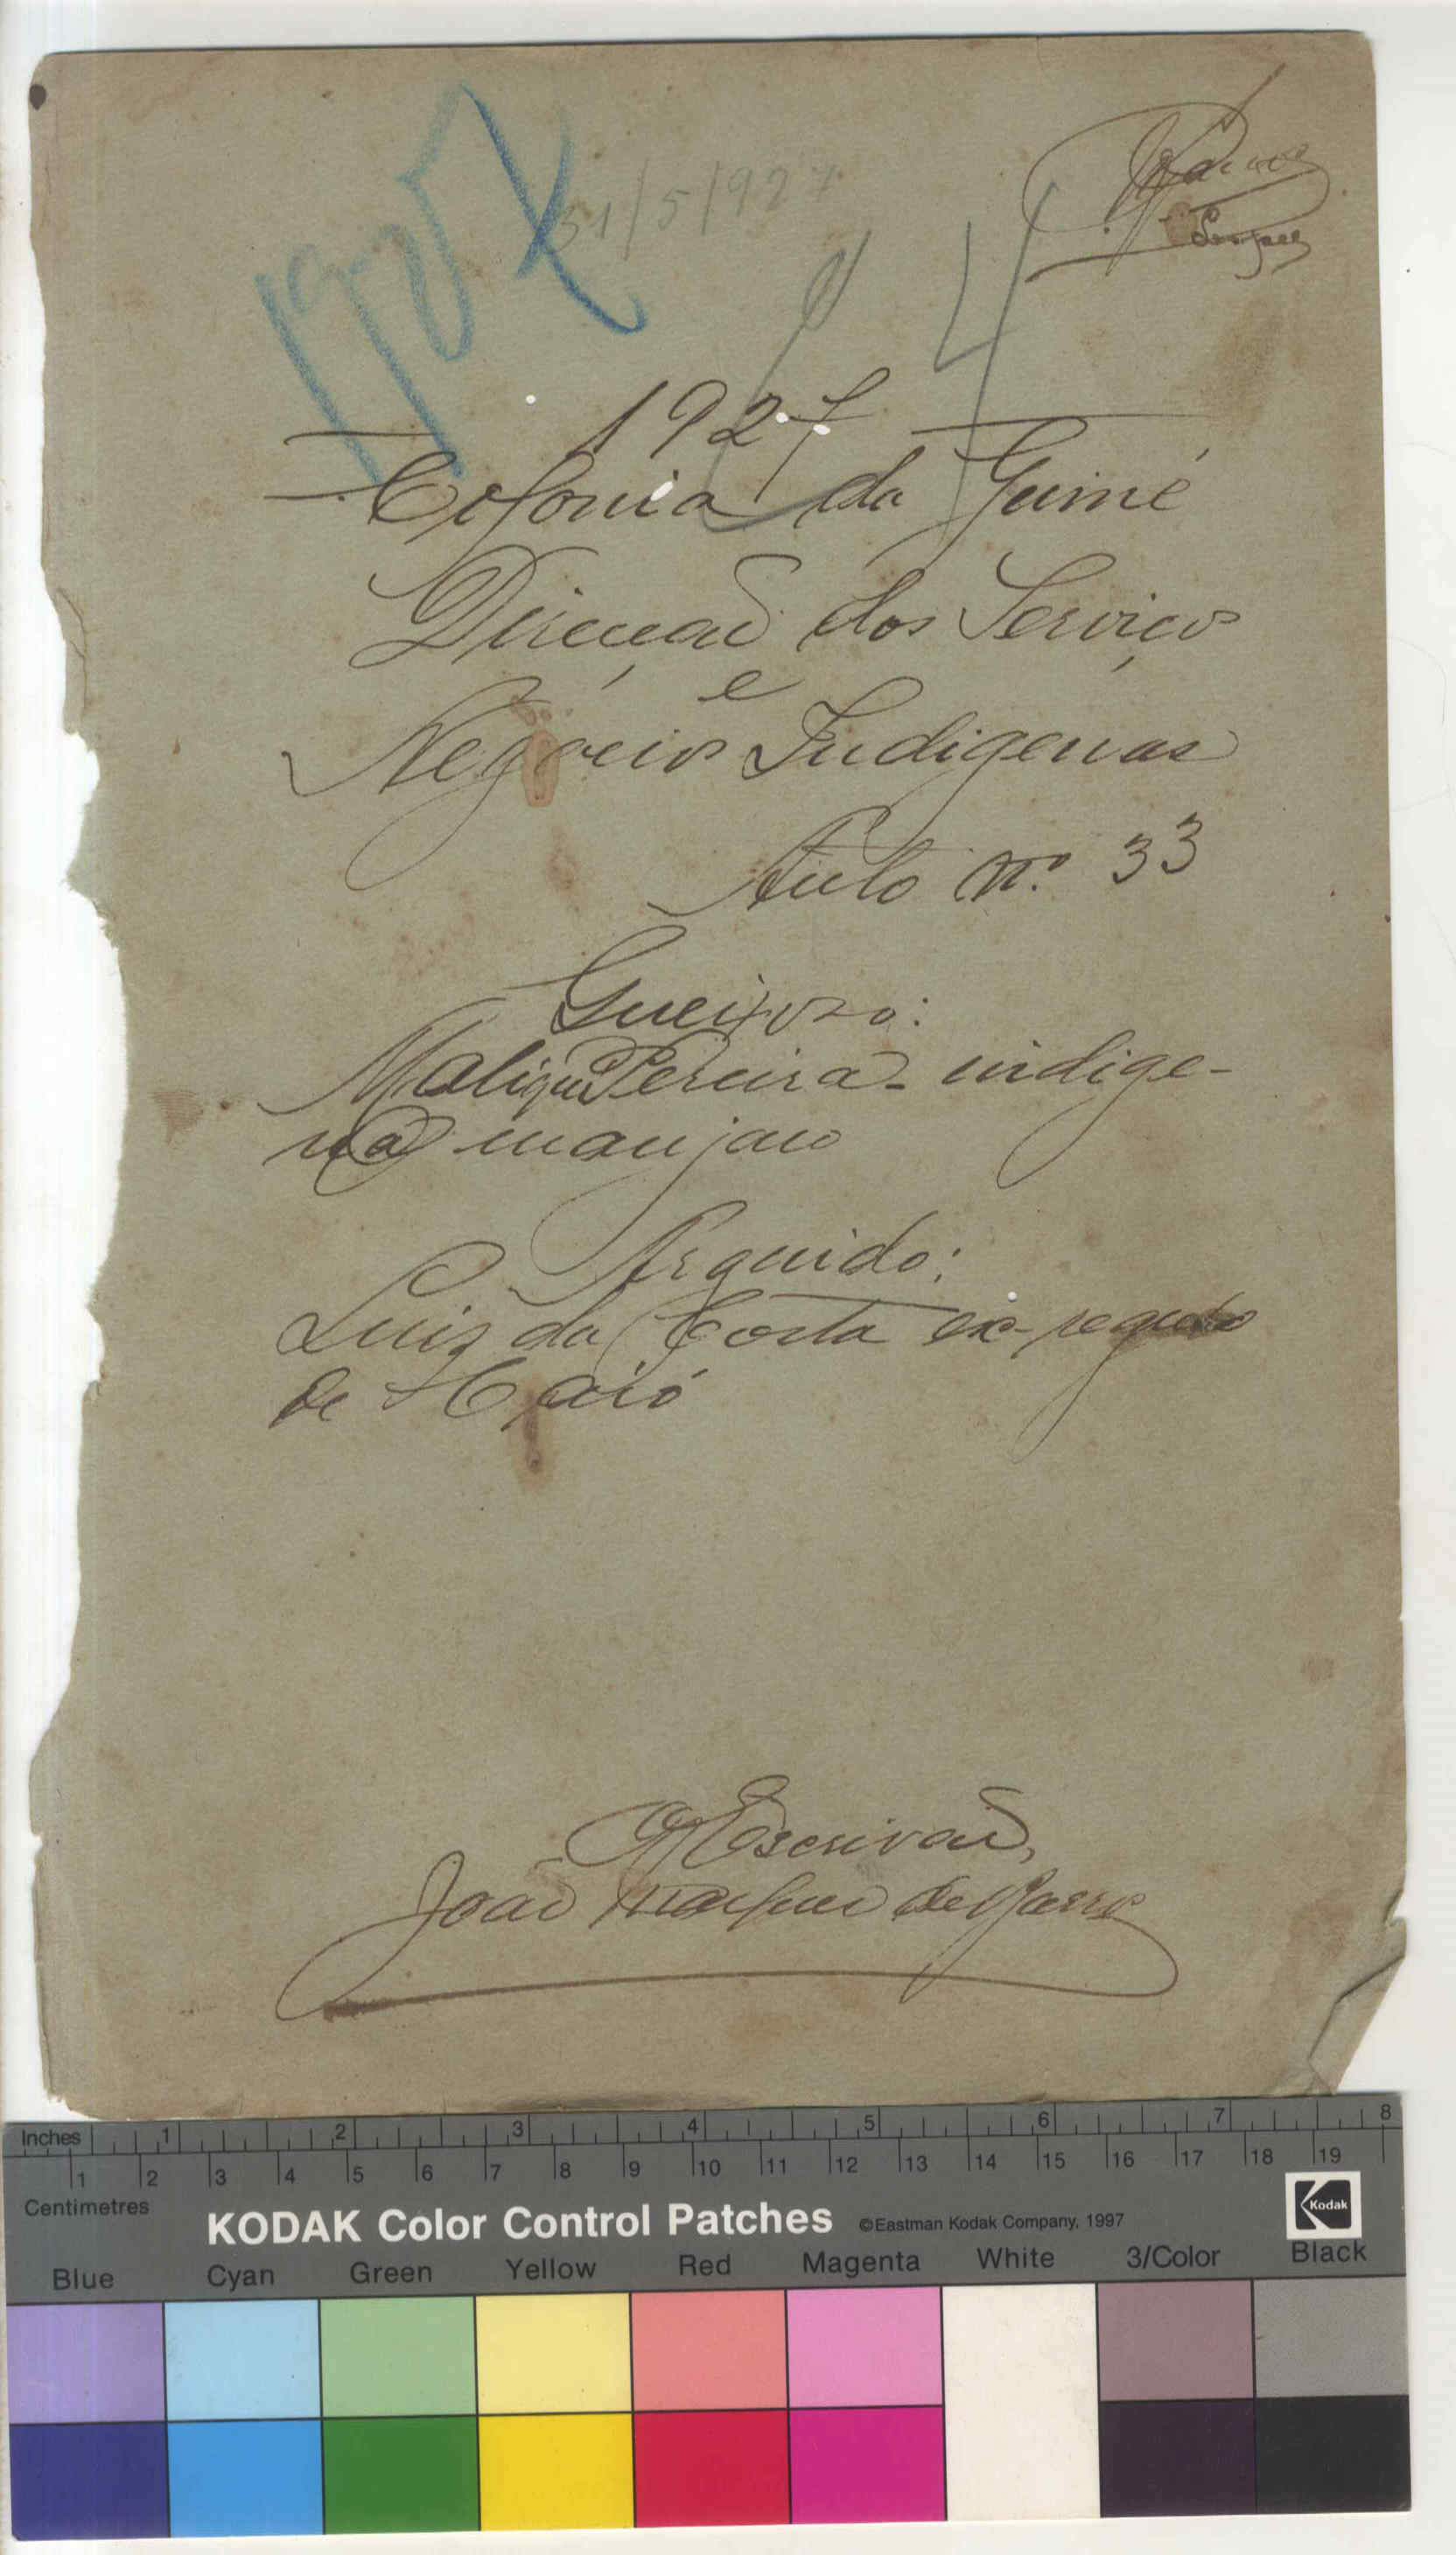 1927
31/5/927
1927
Colonia da Guiné
Direcção dos Serviços
e
Negócios Indigenas
Auto Nº 33
Queixoso:
Malique Pereira - indige-
na manjaco
Arguido:
Luiz da Costa ex-regulo
de Caió
O Escrivaõ,
Joaõ de Barros
Inches 1 2 3 4 5 6 7 8
1 2 3 4 5 6 7 8 9 10 11 12 13 14 15 16 17 18 19
Centimetres
KODAK Color Control Patches ©Eastman Kodak Company, 1997 Kodak
Blue Cyan Green Yellow Red Magenta White 3/Color Black